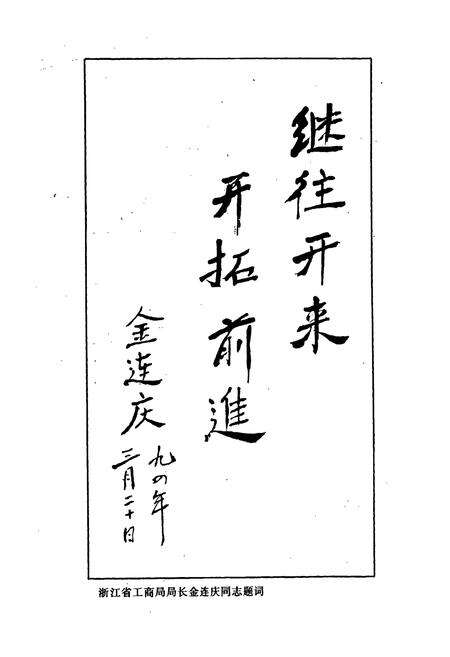 继往开来
开拓前進
金连庆
九四年
三月二十日
浙江省工商局局长金连庆同志题词